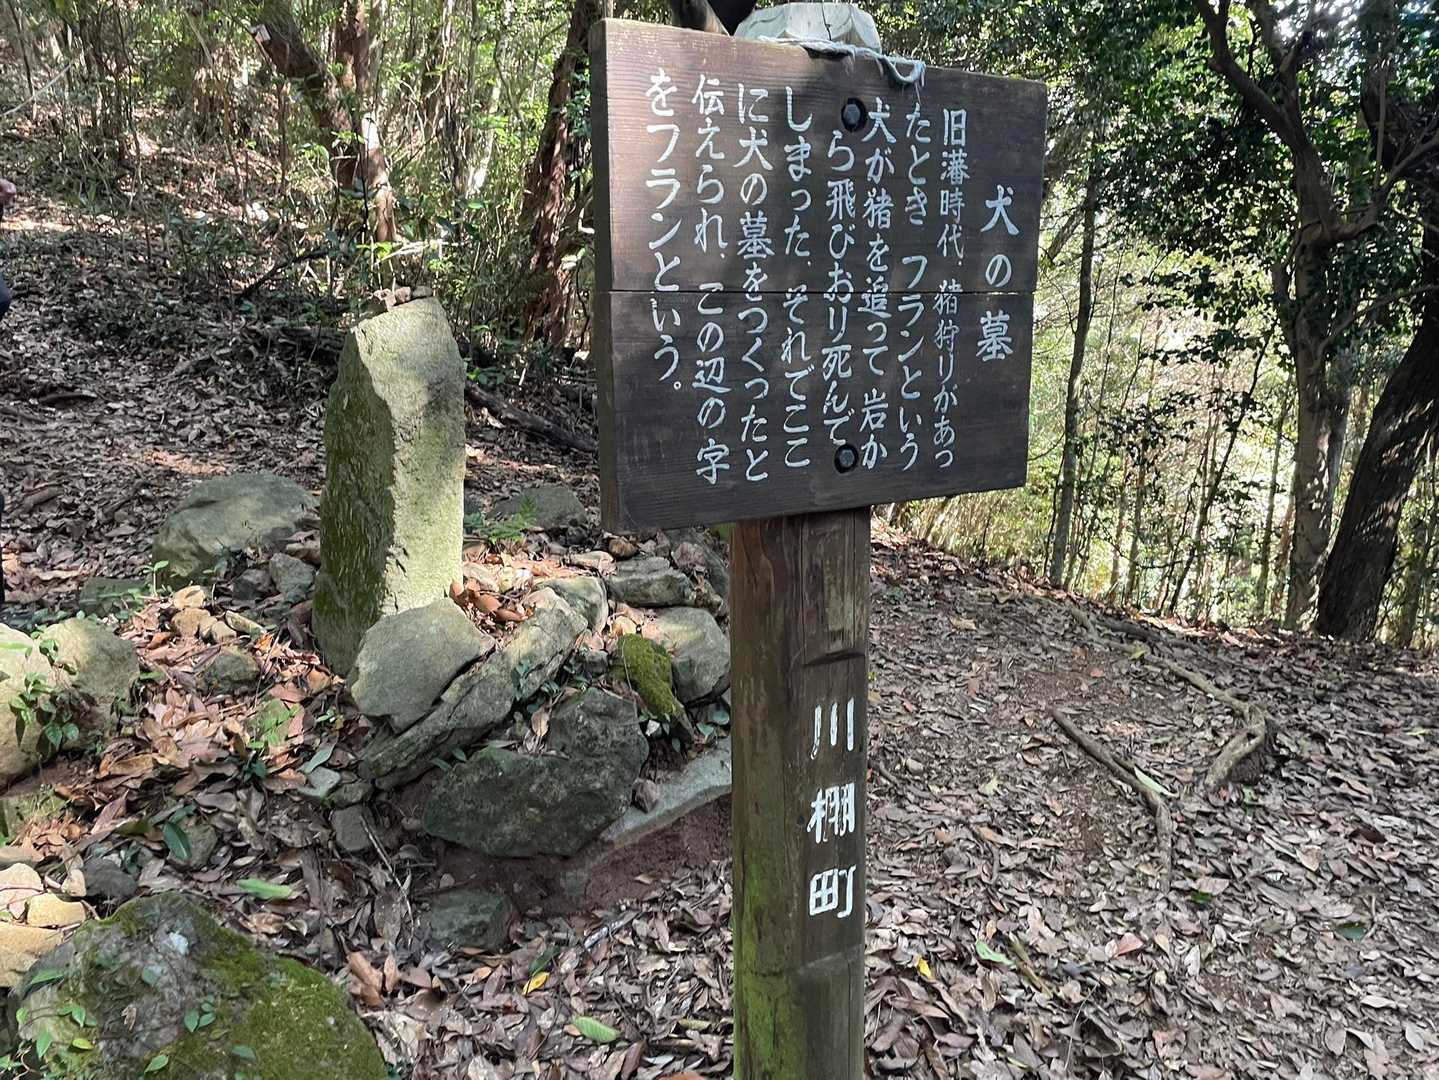 犬の墓
旧藩時代、猪狩りがあっ
たとき フランという
犬が猪を追って岩か
ら飛びおり死んで
しまった、それでここ
に犬の墓をつくったと
伝えられ、この辺の字
をフランという。
川棚町